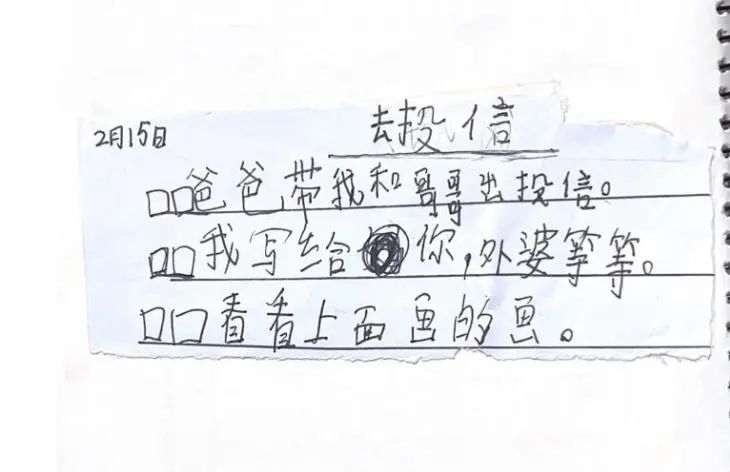 去投信
2月15日
□□爸爸带我和哥哥出投信。
□□我写给你,外婆等等。
□□看看上面画的画。